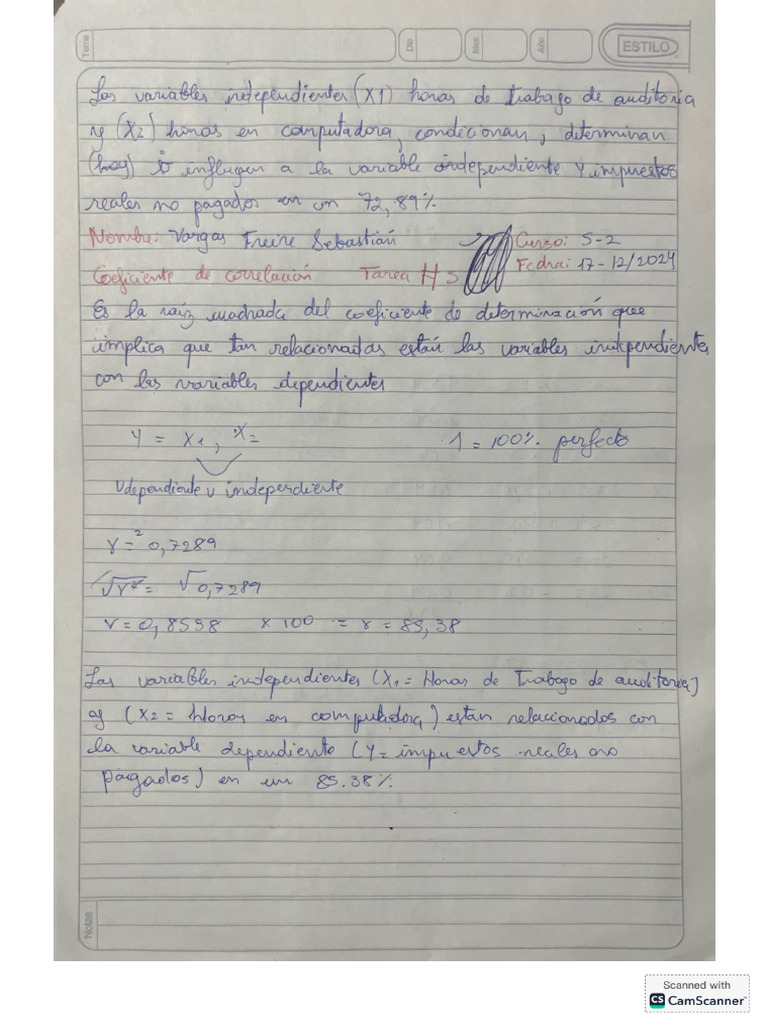 Tema
Día
Mes
Año
ESTILO
Las variables independientes (X1) horas de trabago de auditoria
y (X2) horas en computadora, condicionan, determinan
(hay) o influyen a la variable independiente Y impuestos
reales no pagados en un 72,89%
Nombre: Vargas Freire Sebastián Curso: S-2
Coeficiente de correlación Tarea # 5 Fecha: 17-12/2024
Es la raíz cuadrada del coeficiente de determinación que
implica que tan relacionadas están las variables independientes
con las variables dependientes
Y = X1, X2 1 = 100% perfecto
V dependiente v independiente
r² = 0,7289
√r² = √0,7289
r = 0,8538 x 100 = r = 85,38
Las variables independientes (X1 = Horas de Trabago de auditoria)
y (X2 = Horas en computadora) estan relacionados con
la variable dependiente (Y= impuestos reales no
pagados) en un 85.38%
Notas
Scanned with
CS CamScanner